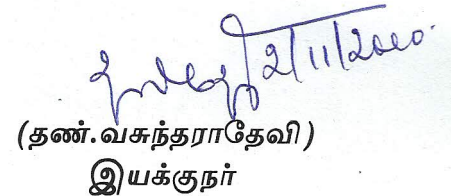 2/11/2010.
(தண்.வசுந்தராதேவி)
இயக்குநர்